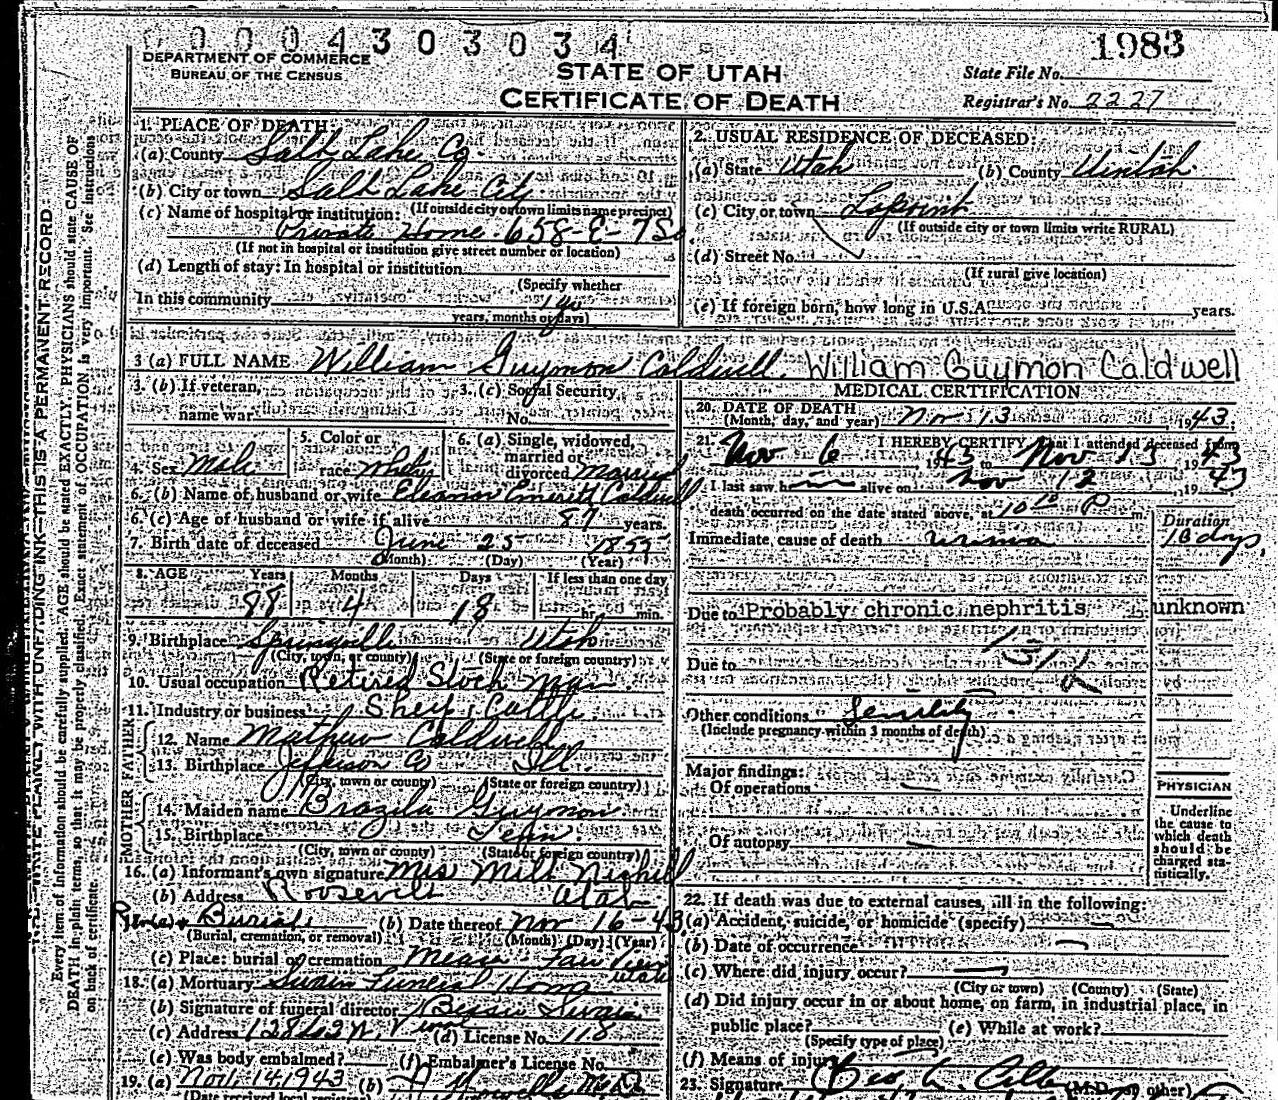 0 0 0 0 4 3 0 3 0 3 4
1983
DEPARTMENT OF COMMERCE
BUREAU OF THE CENSUS
STATE OF UTAH
CERTIFICATE OF DEATH
State File No.
Registrar's No. 2227
1. PLACE OF DEATH:
(a) County Salt Lake Co.
(b) City or town Salt Lake City
(If outside city or town limits name precinct)
(c) Name of hospital or institution:
Private Home 658-E-7S
(If not in hospital or institution give street number or location)
(d) Length of stay: In hospital or institution
(Specify whether
In this community
years, months or days)
2. USUAL RESIDENCE OF DECEASED:
(a) State Utah (b) County Uintah
(c) City or town Lapoint
(If outside city or town limits write RURAL)
(d) Street No.
(If rural give location)
(e) If foreign born, how long in U.S.A. years.
3 (a) FULL NAME William Guymon Caldwell William Guymon Caldwell
3. (b) If veteran, name war
3. (c) Social Security No.
4. Sex Male
5. Color or race White
6. (a) Single, widowed, married or divorced Married
6. (b) Name of husband or wife Eleanor Emerett Caldwell
6. (c) Age of husband or wife if alive 87 years.
7. Birth date of deceased June 25 1855
(Month) (Day) (Year)
8. AGE Years Months Days If less than one day
88 4 18 hr. min.
9. Birthplace Springville Utah
(City, town, or county) (State or foreign country)
10. Usual occupation Retired Stock Man
11. Industry or business Sheep, Cattle
FATHER
12. Name Mathew Caldwell
13. Birthplace Jefferson Co Ill
(City, town or county) (State or foreign country)
MOTHER
14. Maiden name Brazila Guymon
15. Birthplace Tenn.
(City, town or county) (State or foreign country)
16. (a) Informant's own signature Mrs Milt
(b) Address Roosevelt Utah
Burial (b) Date thereof Nov 16-43
(Burial, cremation, or removal) (Month) (Day) (Year)
(c) Place: burial or cremation Utah
18. (a) Mortuary Swain Funeral Home
(b) Signature of funeral director Bessie Swain
(c) Address (d) License No. 118
(e) Was body embalmed? (f) Embalmer's License No.
19. (a) Nov. 14, 1943 (b)
(Date received local registrar)
MEDICAL CERTIFICATION
20. DATE OF DEATH
(Month, day, and year) Nov 13 1943
21. I HEREBY CERTIFY that I attended deceased from
Nov 6, 1943 to Nov 13 1943
I last saw him alive on Nov 12, 1943
death occurred on the date stated above, at 10 10 P m.
Duration
Immediate cause of death uremia days,
Due to Probably chronic nephritis unknown
131
Due to
Other conditions Senility
(Include pregnancy within 3 months of death)
Major findings:
Of operations
PHYSICIAN
Underline
the cause to
which death
should be
charged sta-
tistically.
Of autopsy
22. If death was due to external causes, fill in the following:
(a) Accident, suicide, or homicide (specify)
(b) Date of occurrence
(c) Where did injury occur?
(City or town) (County) (State)
(d) Did injury occur in or about home, on farm, in industrial place, in
public place? (e) While at work?
(Specify type of place)
(f) Means of injury
23. Signature (M.D. or other)
WRITE PLAINLY WITH UNFADING INK—THIS IS A PERMANENT RECORD.
Every item of information should be carefully supplied. AGE should be stated EXACTLY. PHYSICIANS should state CAUSE OF
DEATH in plain terms, so that it may be properly classified. Exact statement of OCCUPATION is very important. See instructions
on back of certificate.